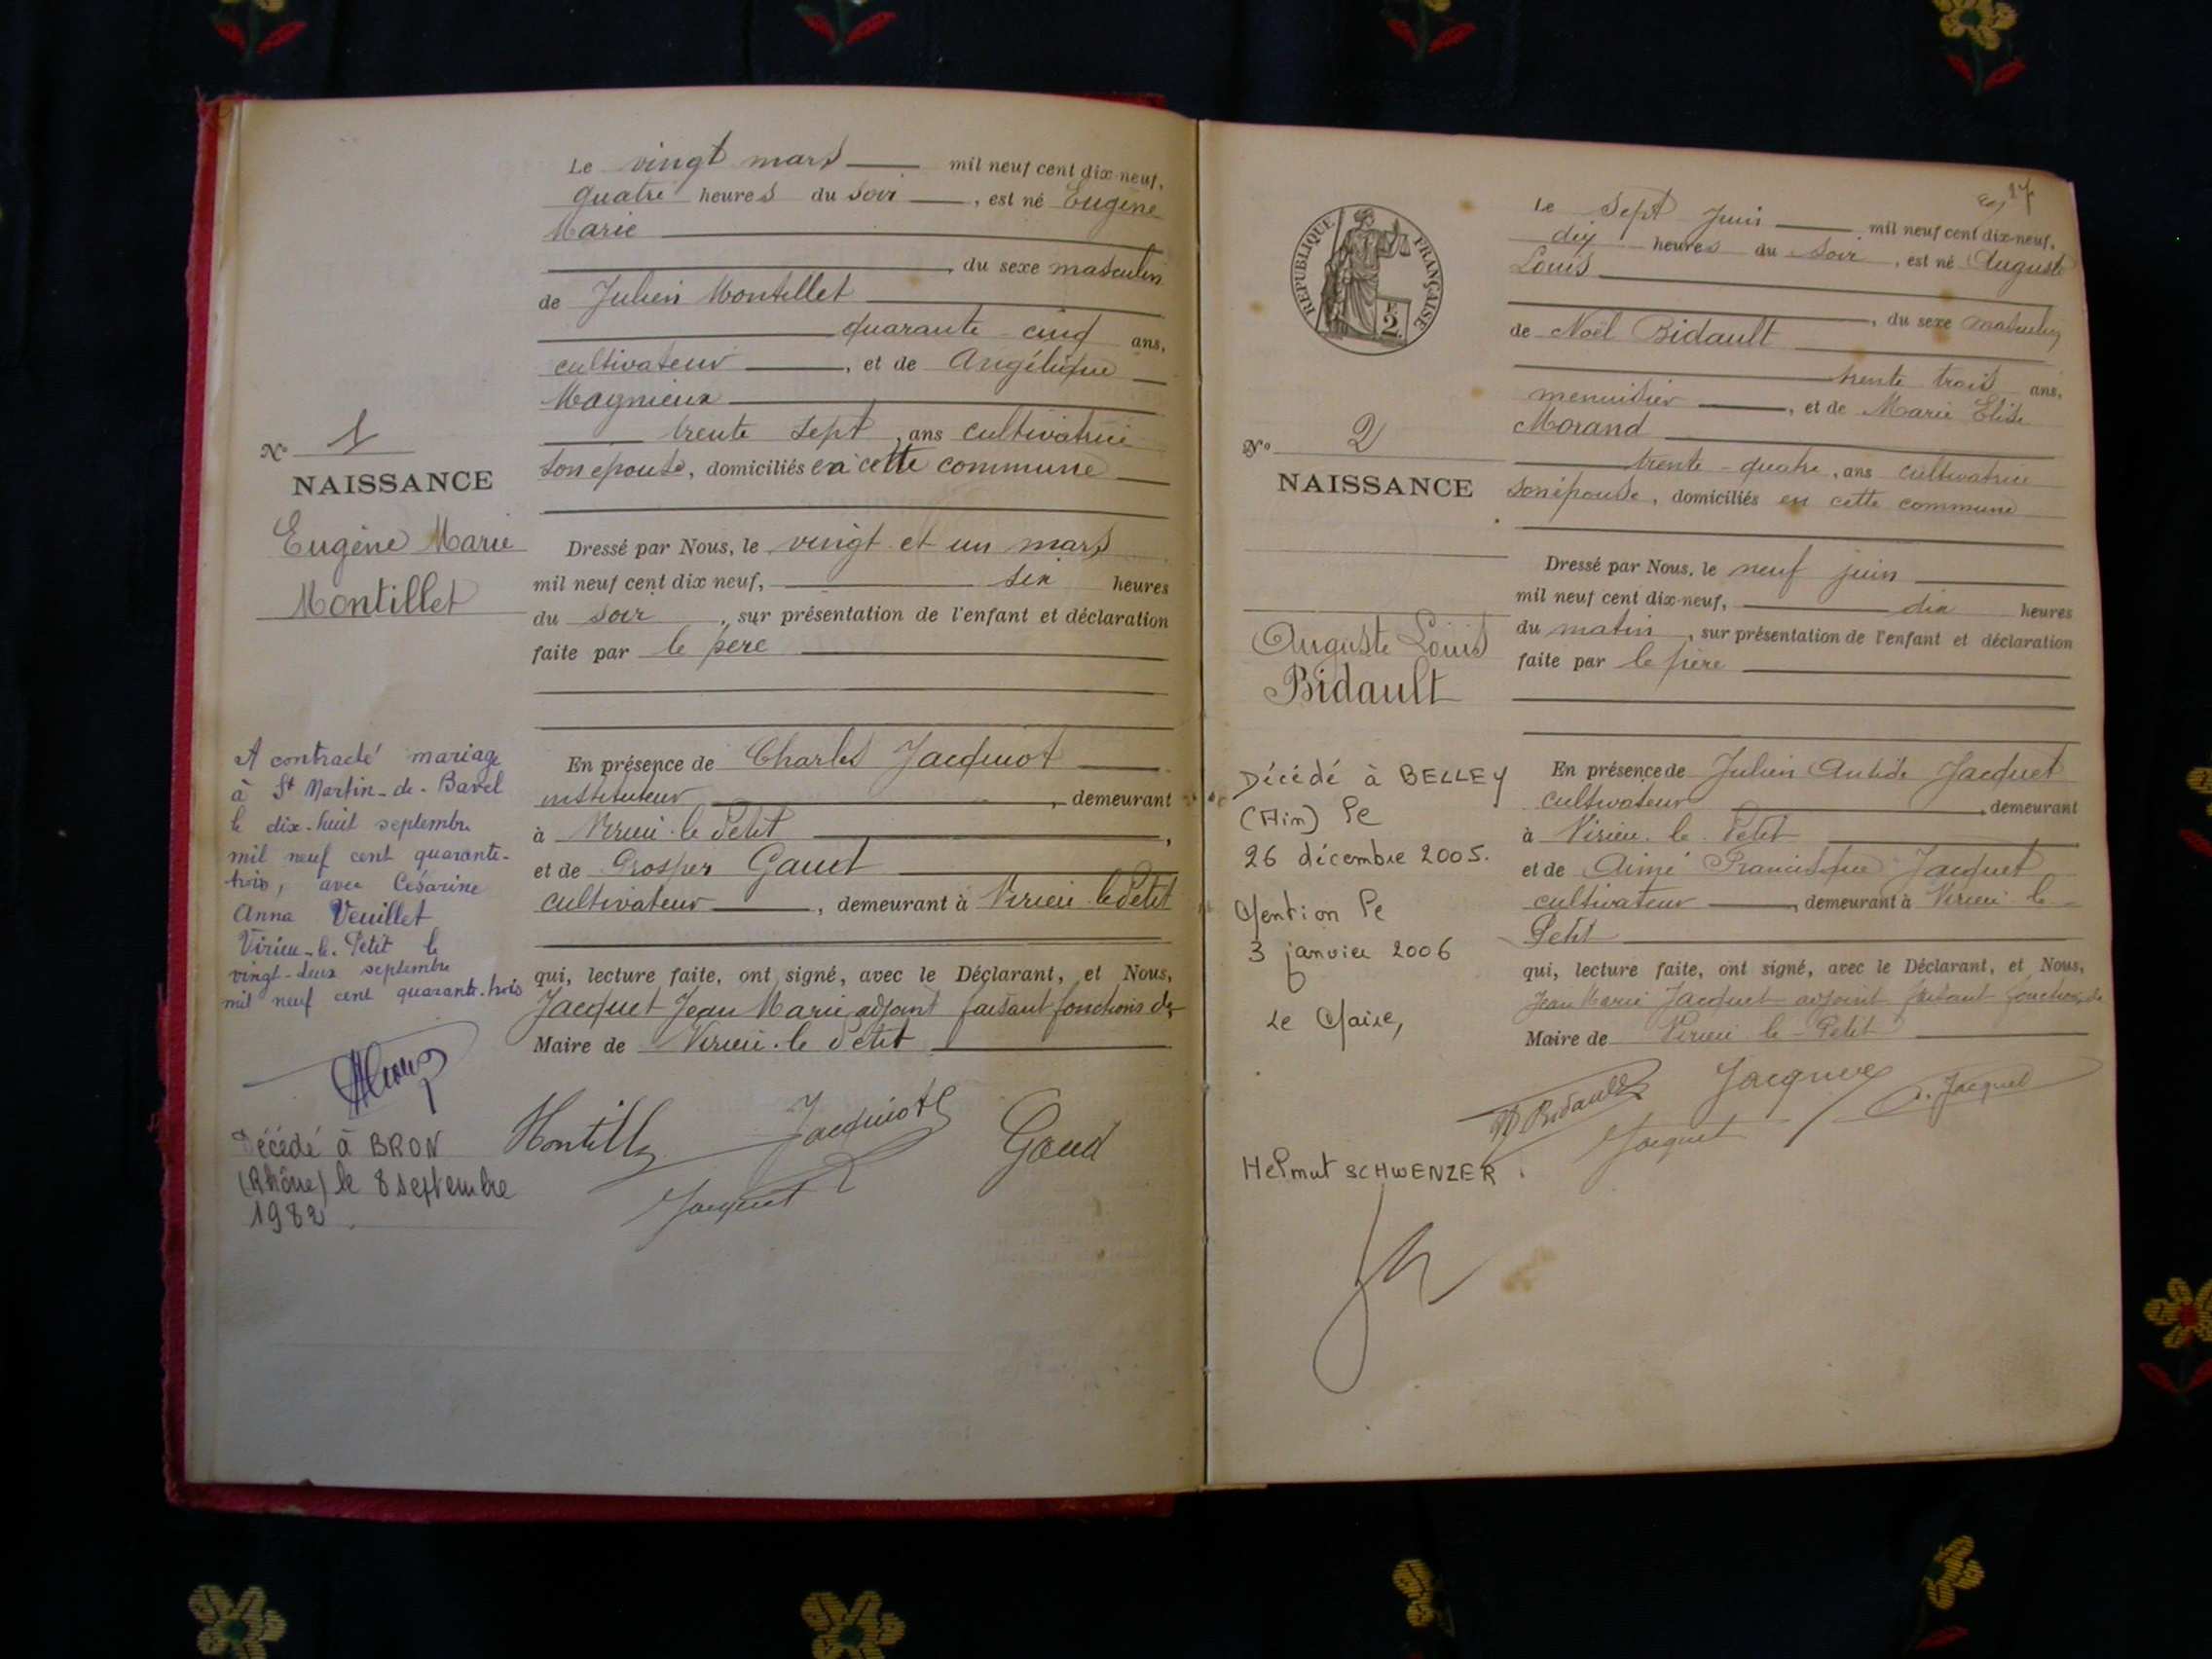 Le vingt mars mil neuf cent dix-neuf,
quatre heures du soir, est né Eugène
Marie
, du sexe masculin
de Julien Montillet
quarante-cinq ans,
cultivateur, et de Angélique
Magnieux
trente sept, ans cultivatrice
son épouse, domiciliés en cette commune
N° 1
NAISSANCE
Eugène Marie
Montillet
Dressé par Nous, le vingt et un mars
mil neuf cent dix neuf, six heures
du soir, sur présentation de l'enfant et déclaration
faite par le père
En présence de Charles Jacquiot
instituteur, demeurant
à Virieu-le-Petit,
et de Prosper Gaud
cultivateur, demeurant à Virieu-le-Petit
qui, lecture faite, ont signé, avec le Déclarant, et Nous,
Jacquet Jean Marie adjoint faisant fonctions de
Maire de Virieu-le-Petit
A contracté mariage
à St Martin-de-Bavel
le dix-huit septembre
mil neuf cent quarante-
trois, avec Césarine
Anna Veuillet
Virieu-le-Petit le
vingt-deux septembre
mil neuf cent quarante-trois
Montillet Jacquiot Gaud
Jacquet
Décédé à BRON
(Rhône) le 8 septembre
1982.
17
REPUBLIQUE FRANÇAISE
2
Le sept juin mil neuf cent dix-neuf,
dix heures du soir, est né Auguste
Louis
, du sexe masculin
de Noël Bidault
trente trois ans,
menuisier, et de Marie Elise
Morand
trente-quatre, ans cultivatrice
son épouse, domiciliés en cette commune
N° 2
NAISSANCE
Auguste Louis
Bidault
Dressé par Nous, le neuf juin
mil neuf cent dix-neuf, dix heures
du matin, sur présentation de l'enfant et déclaration
faite par le père
En présence de Julien Jacquet
cultivateur, demeurant
à Virieu-le-Petit
et de Aimé Francisque Jacquet
cultivateur, demeurant à Virieu-le-
Petit
qui, lecture faite, ont signé, avec le Déclarant, et Nous,
Jean Marie Jacquet adjoint faisant fonctions de
Maire de Virieu-le-Petit
Décédé à BELLEY
(Ain) le
26 décembre 2005.
Mention le
3 janvier 2006
Le Maire,
Helmut SCHWENZER.
N Bidault Jacquet A. Jacquet
Jacquet